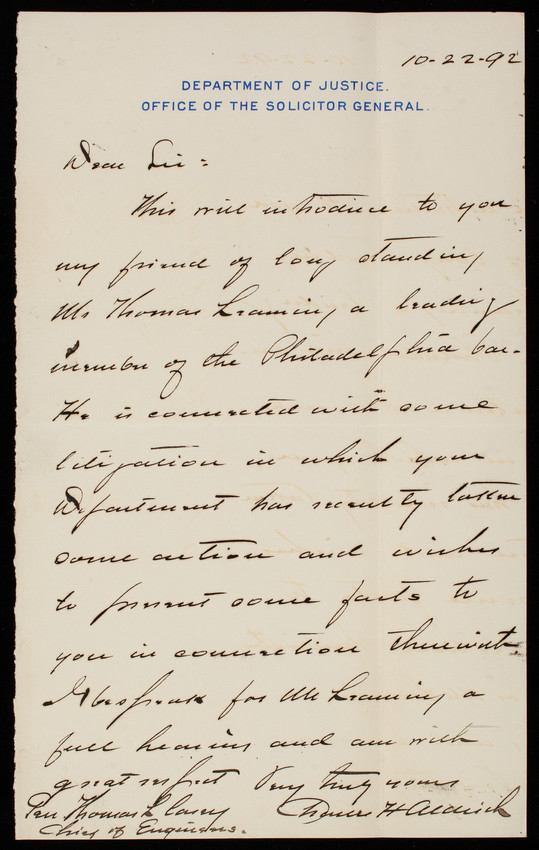 10-22-92
DEPARTMENT OF JUSTICE.
OFFICE OF THE SOLICITOR GENERAL.
Dear Sir:
This will introduce to you
my friend of long standing
Mr Thomas Leaming a leading
member of the Philadelphia bar.
He is connected with some
litigation in which your
Department has recently taken
some action and wishes
to present some facts to
you in connection therewith.
I bespeak for Mr Leaming a
full hearing and am with
great respect Very truly yours
Gen Thomas L Casey Charles H Aldrich
Chief of Engineers.